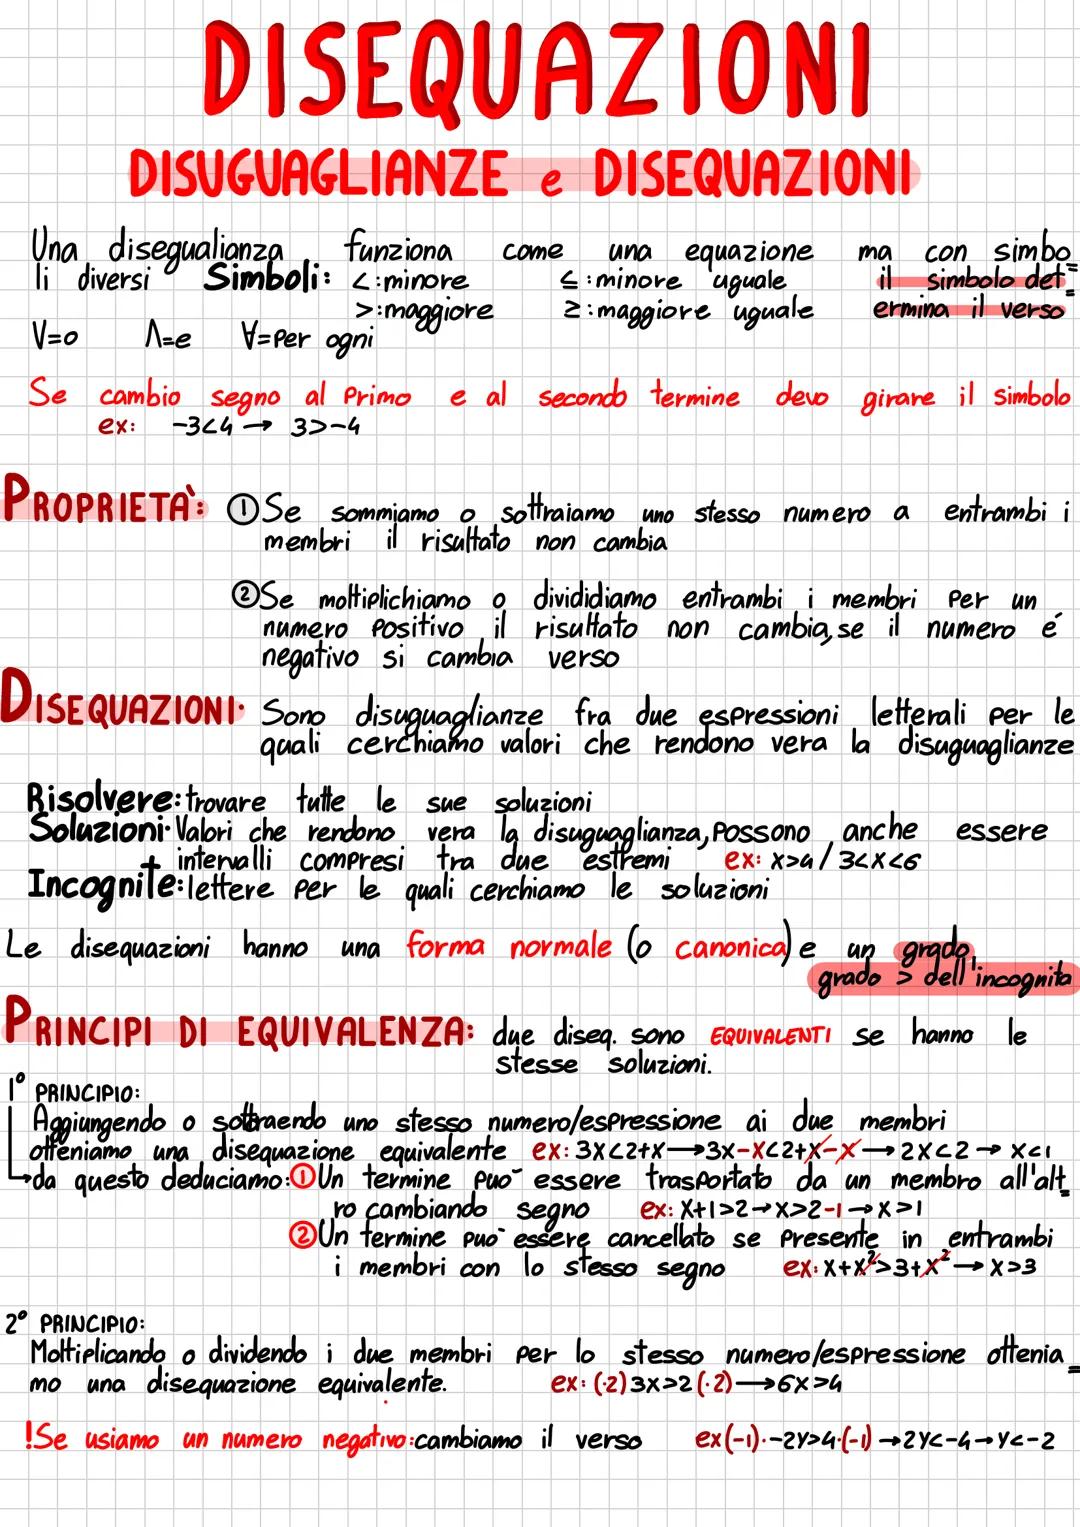 DISEQUAZIONI
DISUGUAGLIANZE e DISEQUAZIONI
Una disegualianza funziona come una equazione ma con simbo=
li diversi Simboli: <:minore ≤:minore uguale il simbolo det=
>:maggiore ≥:maggiore uguale ermina il verso
V=o Λ=e ∀=per ogni
Se cambio segno al primo e al secondo termine devo girare il simbolo
ex: -3<4 → 3>-4
PROPRIETÀ: ① Se sommiamo o sottraiamo uno stesso numero a entrambi i
membri il risultato non cambia
② Se moltiplichiamo o divididiamo entrambi i membri per un
numero positivo il risultato non cambia, se il numero é
negativo si cambia verso
DISEQUAZIONI: Sono disuguaglianze fra due espressioni letterali per le
quali cerchiamo valori che rendono vera la disuguaglianze
Risolvere: trovare tutte le sue soluzioni
Soluzioni: Valori che rendono vera la disuguaglianza, possono anche essere
+ intervalli compresi tra due estremi ex: x>4 / 3<x<6
Incognite: lettere per le quali cerchiamo le soluzioni
Le disequazioni hanno una forma normale (o canonica) e un grado
grado > dell'incognita
PRINCIPI DI EQUIVALENZA: due diseq. sono EQUIVALENTI se hanno le
stesse soluzioni.
1° PRINCIPIO:
Aggiungendo o sottraendo uno stesso numero/espressione ai due membri
otteniamo una disequazione equivalente ex: 3x<2+x → 3x-x<2+x-x → 2x<2 → x<1
→da questo deduciamo: ① Un termine puo' essere trasportato da un membro all'alt=
ro cambiando segno ex: x+1>2→x>2-1→x>1
② Un termine puo' essere cancellato se presente in entrambi
i membri con lo stesso segno ex: x+x²>3+x² → x>3
2° PRINCIPIO:
Moltiplicando o dividendo i due membri per lo stesso numero/espressione ottenia=
mo una disequazione equivalente. ex: (·2) 3x>2 (·2) → 6x>4
!Se usiamo un numero negativo: cambiamo il verso ex(-1)·-2y>4·(-1) →2y<-4→y<-2